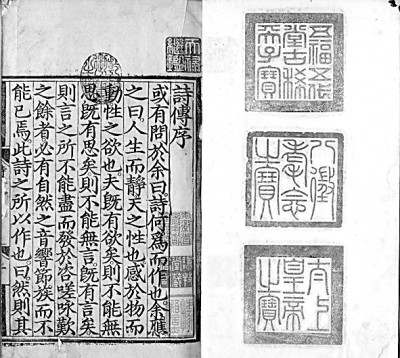 五福五代
堂古稀
天子寶
八徵
耄念
之寶
太上
皇帝
之寶
詩傳序
或有問於余曰詩何爲而作也余應
之曰人生而靜天之性也感於物而
動性之欲也夫既有欲矣則不能無
思既有思矣則不能無言既有言矣
則言之所不能盡而發於咨嗟咏歎
之餘者必有自然之音響節族而不
能已焉此詩之所以作也曰然則其